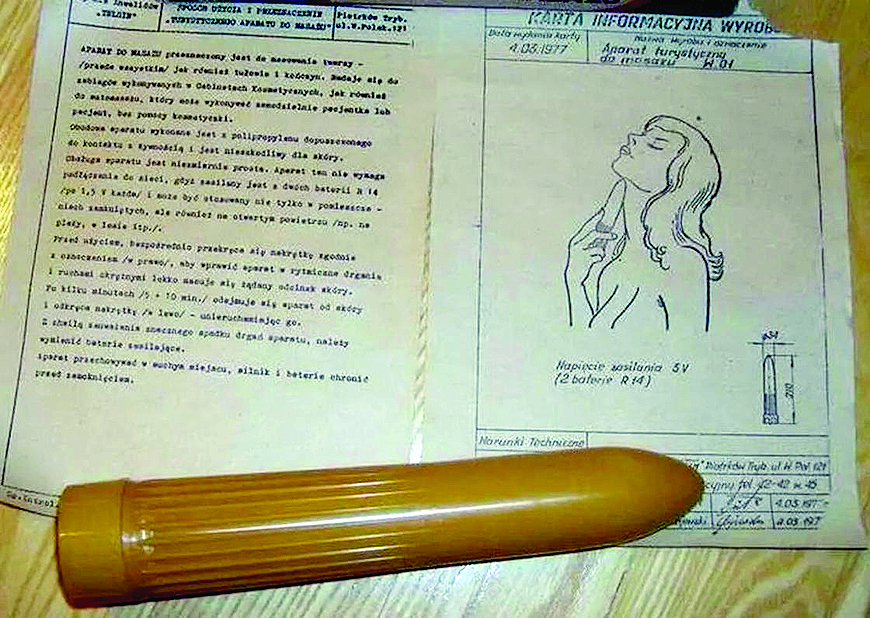 Inwalidów
"TELGIN"
SPOSÓB UŻYCIA I PRZEZNACZENIE
"TURYSTYCZNEGO APARATU DO MASAŻU"
Piotrków Tryb.
ul.W.Polsk.121
APARAT DO MASAŻU przeznaczony jest do masowania twarzy -
/przede wszystkim/ jak również tułowia i kończyn. Nadaje się do
zabiegów wykonywanych w Gabinetach Kosmetycznych, jak również
do automasażu, który może wykonywać samodzielnie pacjentka lub
pacjent, bez pomocy kosmetyczki.
Obudowa aparatu wykonana jest z polipropylenu dopuszczonego
do kontaktu z żywnością i jest nieszkodliwy dla skóry.
Obsługa aparatu jest niezmiernie prosta. Aparat ten nie wymaga
podłączenia do sieci, gdyż zasilany jest z dwóch baterii R 14
/po 1,5 V każda/ i może być stosowany nie tylko w pomieszcze -
niach zamkniętych, ale również na otwartym powietrzu /np. na
plaży, w lesie itp./.
Przed użyciem, bezpośrednio przekręca się nakrętkę zgodnie
z oznaczeniem /w prawo/, aby wprawić aparat w rytmiczne drgania
i ruchami okrężnymi lekko masuje się żądany odcinek skóry.
Po kilku minutach /5 + 10 min./ odejmuje się aparat od skóry
i odkręca nakrętkę /w lewo/ - unieruchamiając go.
Z chwilą zauważenia znacznego spadku drgań aparatu, należy
wymienić baterie zasilające.
Aparat przechowywać w suchym miejscu, silnik i baterie chronić
przed zamoknięciem.
KARTA INFORMACYJNA WYROBU
Data wydania karty
4.03.1977
Nazwa wyrobu i oznaczenie
Aparat turystyczny
do masażu W 01
ø34
210
Napięcie zasilania 3V
(2 baterie R 14)
Warunki Techniczne
Piotrków Tryb. ul. W. Pol. 121
tel. 42-42 w. 45
4.03.197
4.03.197